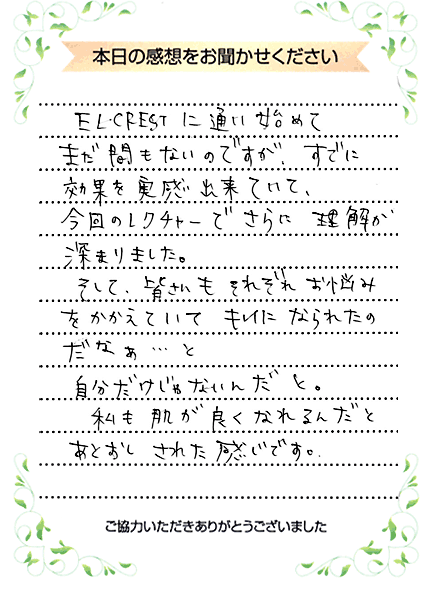 本日の感想をお聞かせください
EL・CRESTに通い始めて
まだ間もないのですが、すでに
効果を実感出来ていて、
今回のレクチャーでさらに理解が
深まりました。
そして、皆さんもそれぞれお悩み
をかかえていてキレイになられたの
だなぁ…と
自分だけじゃないんだと。
私も肌が良くなれるんだと
あとおしされた感じです。
ご協力いただきありがとうございました